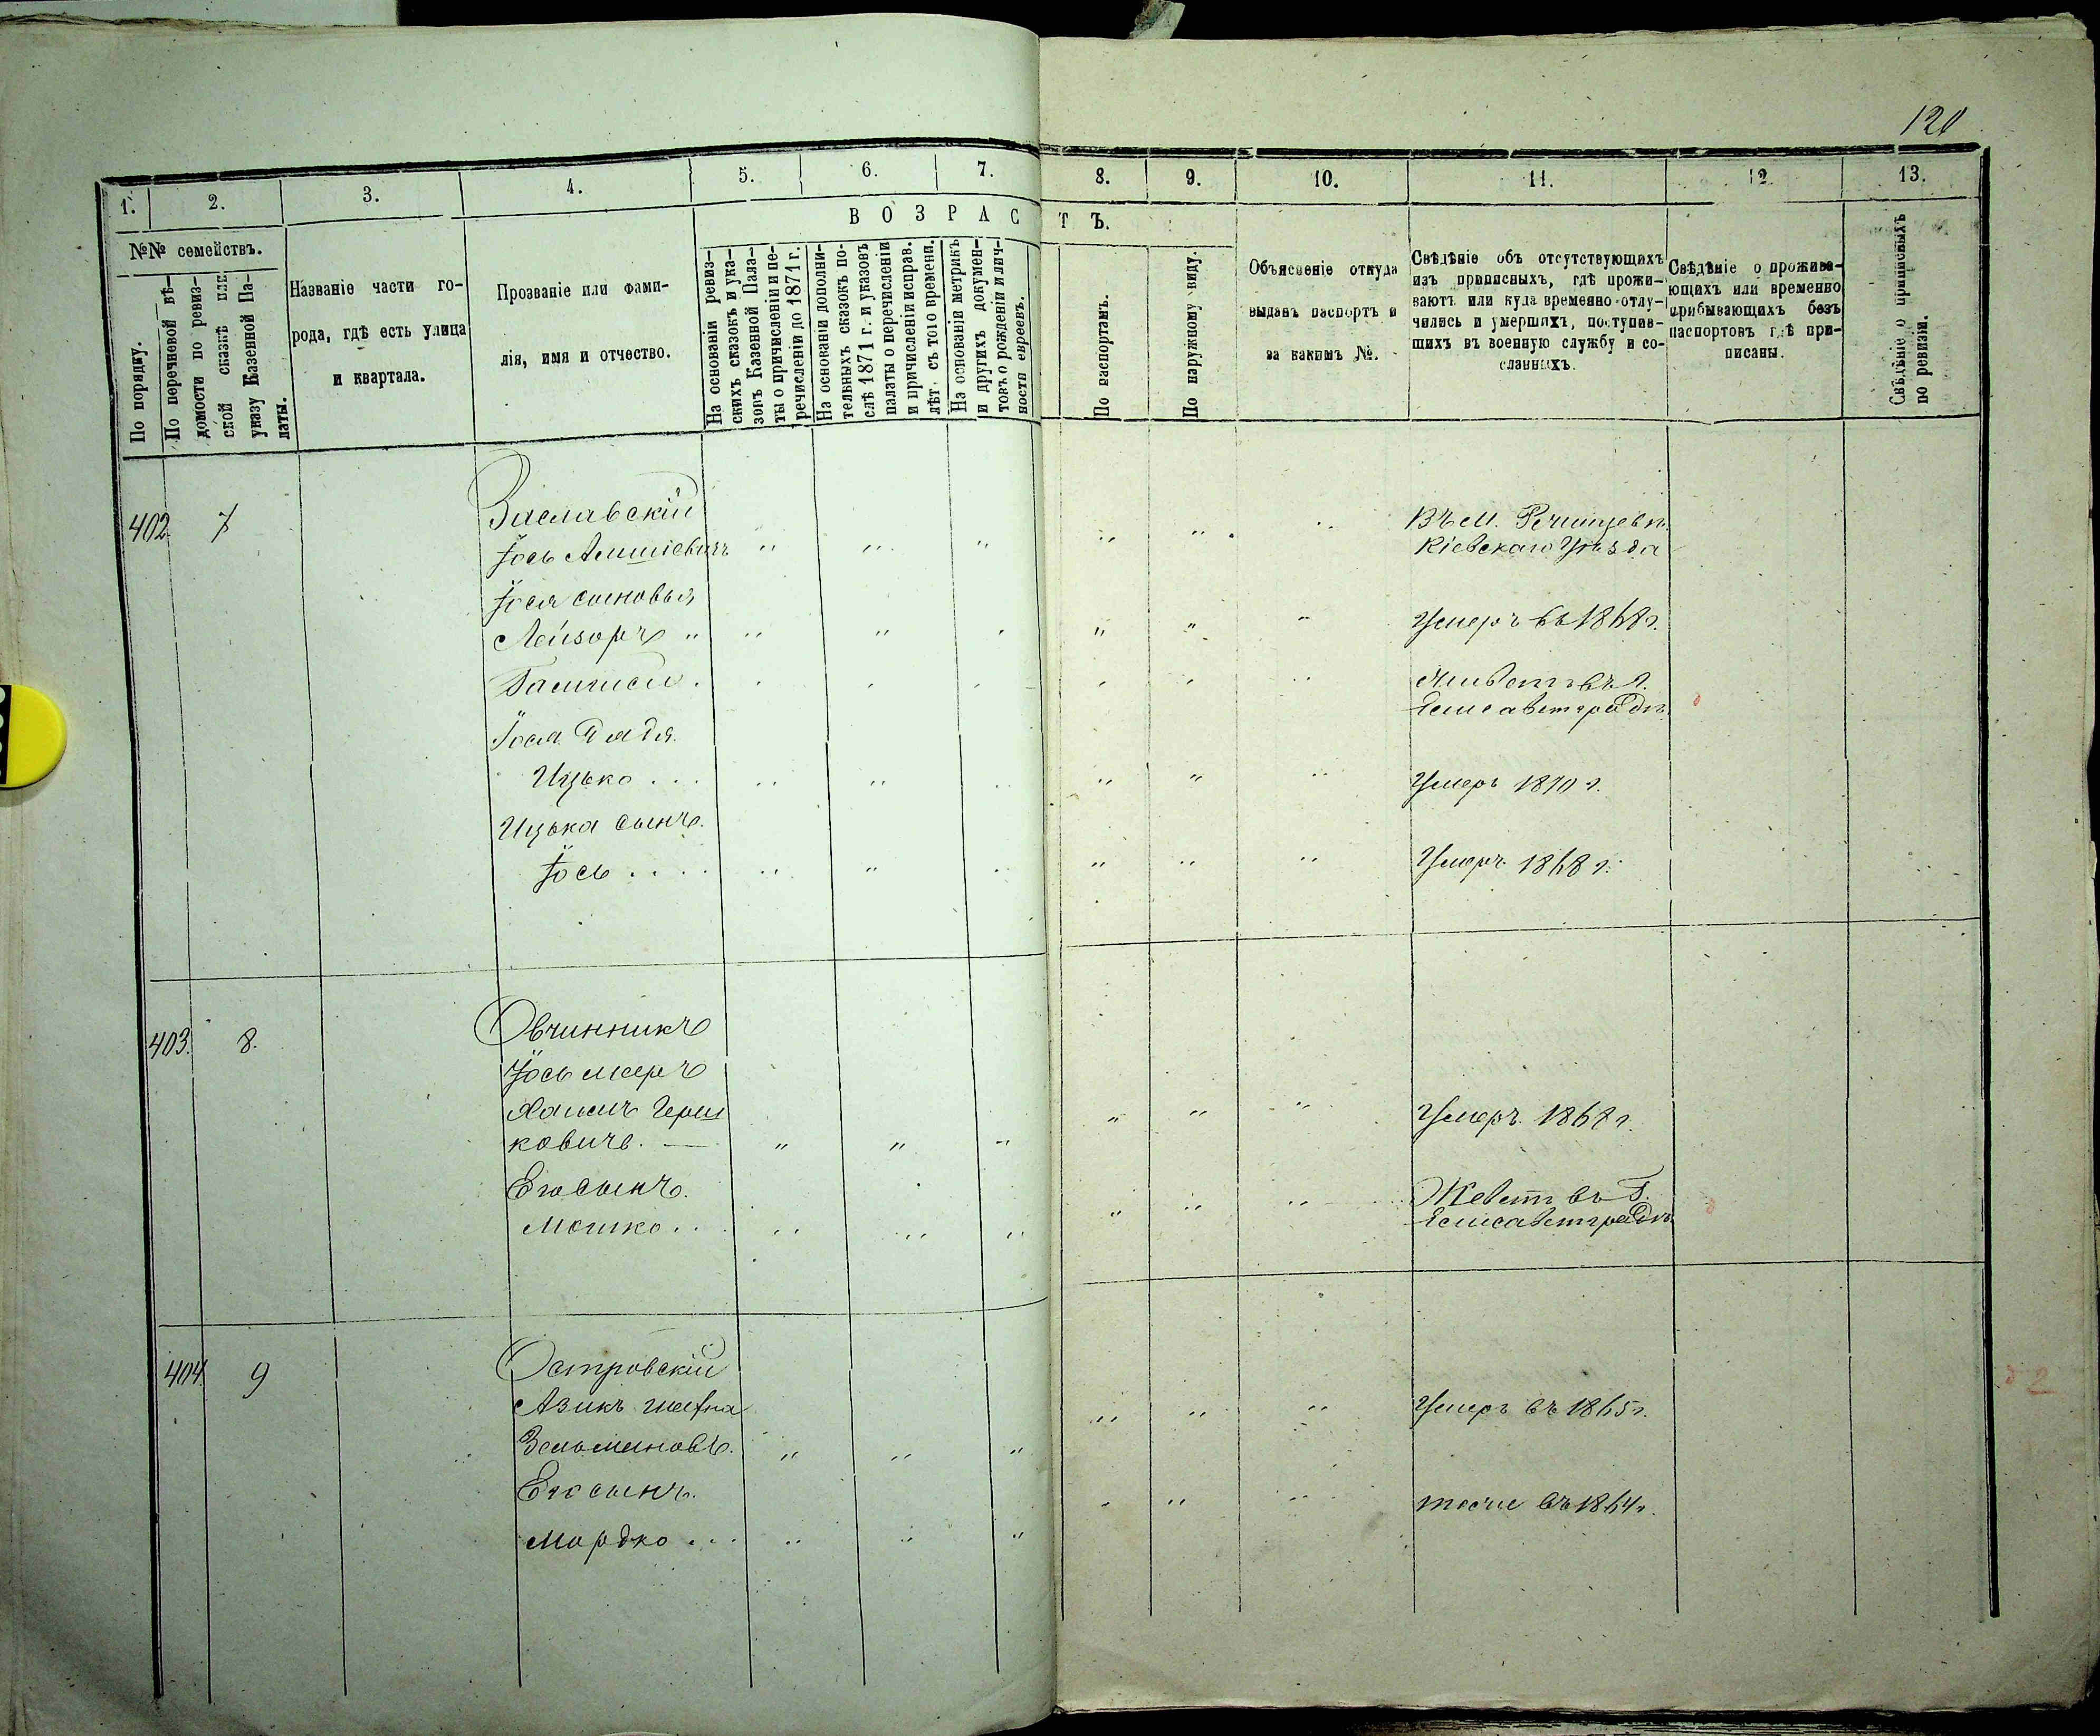 120
1. 2. 3. 4. 5. 6. 7. 8. 9. 10. 11. 12 13.
№№ семействъ.
По порядку.
По перечневой вѣ-
домости по ревиз-
ской сказкѣ или
указу Казенной Па-
латы.
Названіе части го-
рода, гдѣ есть улица
и квартала.
Прозваніе или фами-
лія, имя и отчество.
ВОЗРАСТЪ.
На основаніи ревиз-
скихъ сказокъ и ука-
зовъ Казенной Пала-
ты о причисленіи и пе-
речисленіи до 1871 г.
На основаніи дополни-
тельныхъ сказокъ по-
слѣ 1871 г. и указовъ
палаты о перечисленіи
и причисленіи исправ.
лѣт. съ того времени.
На основаніи метрикъ
и другихъ докумен-
товъ о рожденіи и лич-
ности евреевъ.
По паспортамъ.
По наружному виду.
Объясненіе откуда
выданъ паспортъ и
за какимъ №.
Свѣдѣніе объ отсутствующихъ
изъ приписныхъ, гдѣ прожи-
ваютъ или куда временно отлу-
чились и умершихъ, поступив-
шихъ въ военную службу и со-
сланныхъ.
Свѣдѣніе о прожива-
ющихъ или временно
прибывающихъ безъ
паспортовъ гдѣ при-
писаны.
Свѣдѣніе о приписныхъ
по ревизіи.
402. 7 Заславскій
Іось Въ М.
Кіевскаго Уѣзда
Іося сыновья
Лейзоръ Умеръ въ 1868 г.
Елисаветградѣ
Іося дядя
Ицько Умеръ 1870 г.
Ицька сынъ.
Іось Умеръ 1868 г.
403. 8. Овчинникъ
Іосьмееръ
Хаимъ Герш
ковичъ. Умеръ 1868 г.
Его сынъ. Живетъ въ Г.
Мошко Елисаветградѣ
404. 9 Островскій
Азикъ Шефка Умеръ въ 1865 г.
Зельмановъ.
Его сынъ. тоже въ 1864 г.
Мордко
2